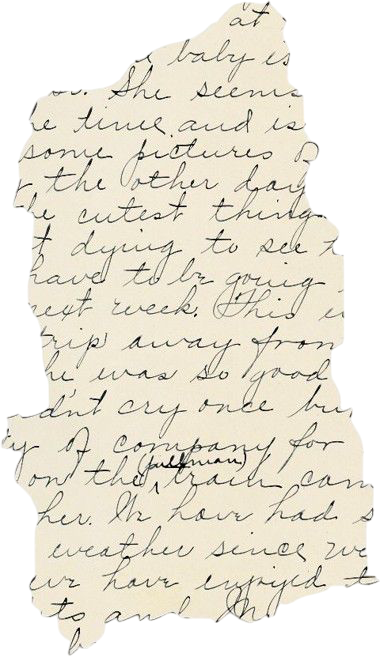 at
baby is
. She seems
he time and is
some pictures o
the other day
he cutest thing
t dying to see h
have to be going
next week. This i
trip away from
he was so good
dn't cry once bu
ty of company for
(pullman)
on the train com
her. We have had s
weather since we
we have enjoyed t
ts and M
b